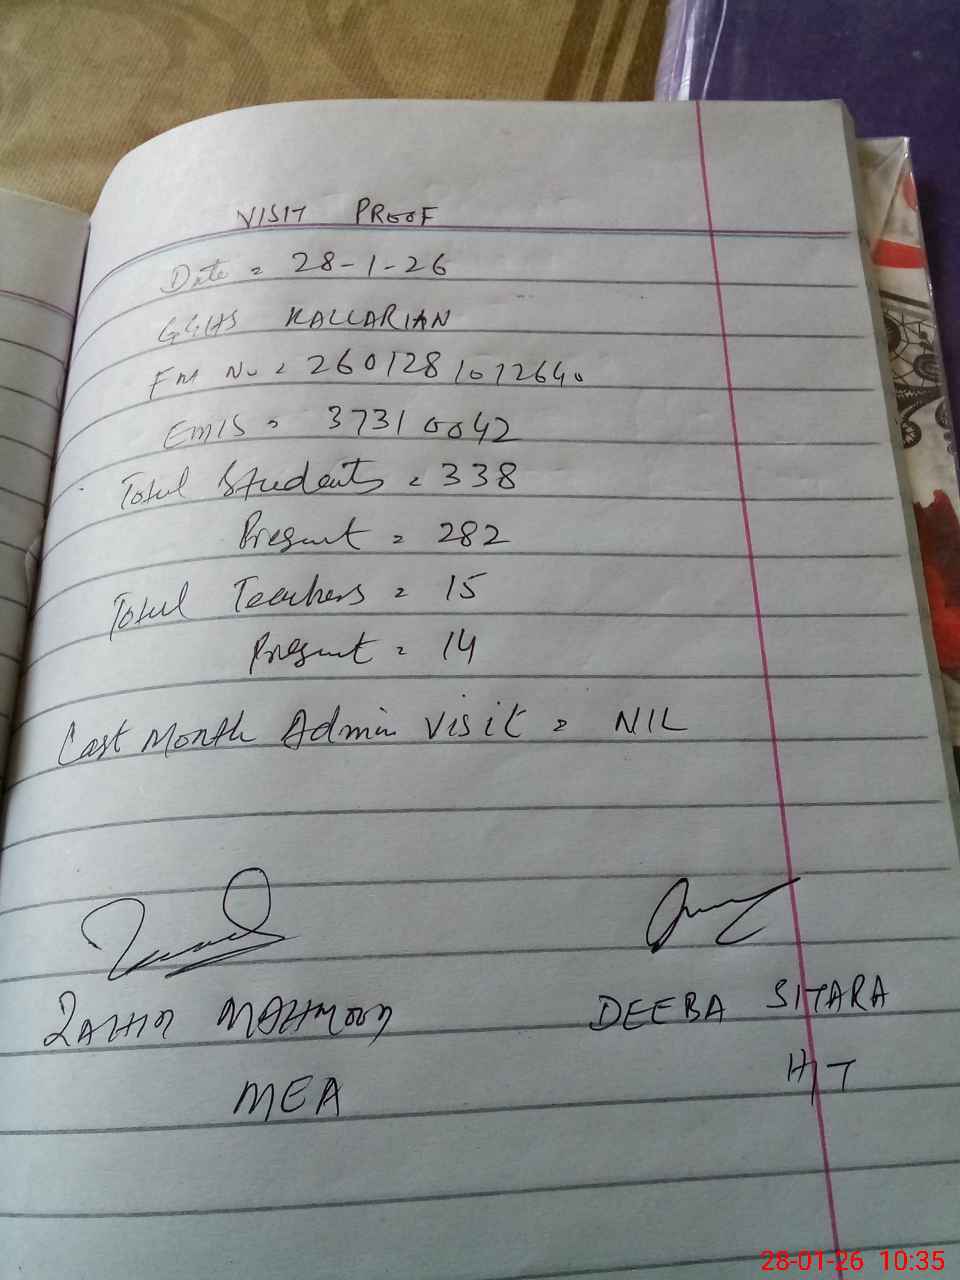 VISIT PROOF
Date = 28-1-26
GGHS KALLARIAN
Fm No = 2601281012640
EMIS = 37310042
Total Students = 338
Present = 282
Total Teachers = 15
Present = 14
Last Month Admin Visit = NIL
MAHMOOD
DEEBA SITARA
MEA
H/T
28-01-26 10:35